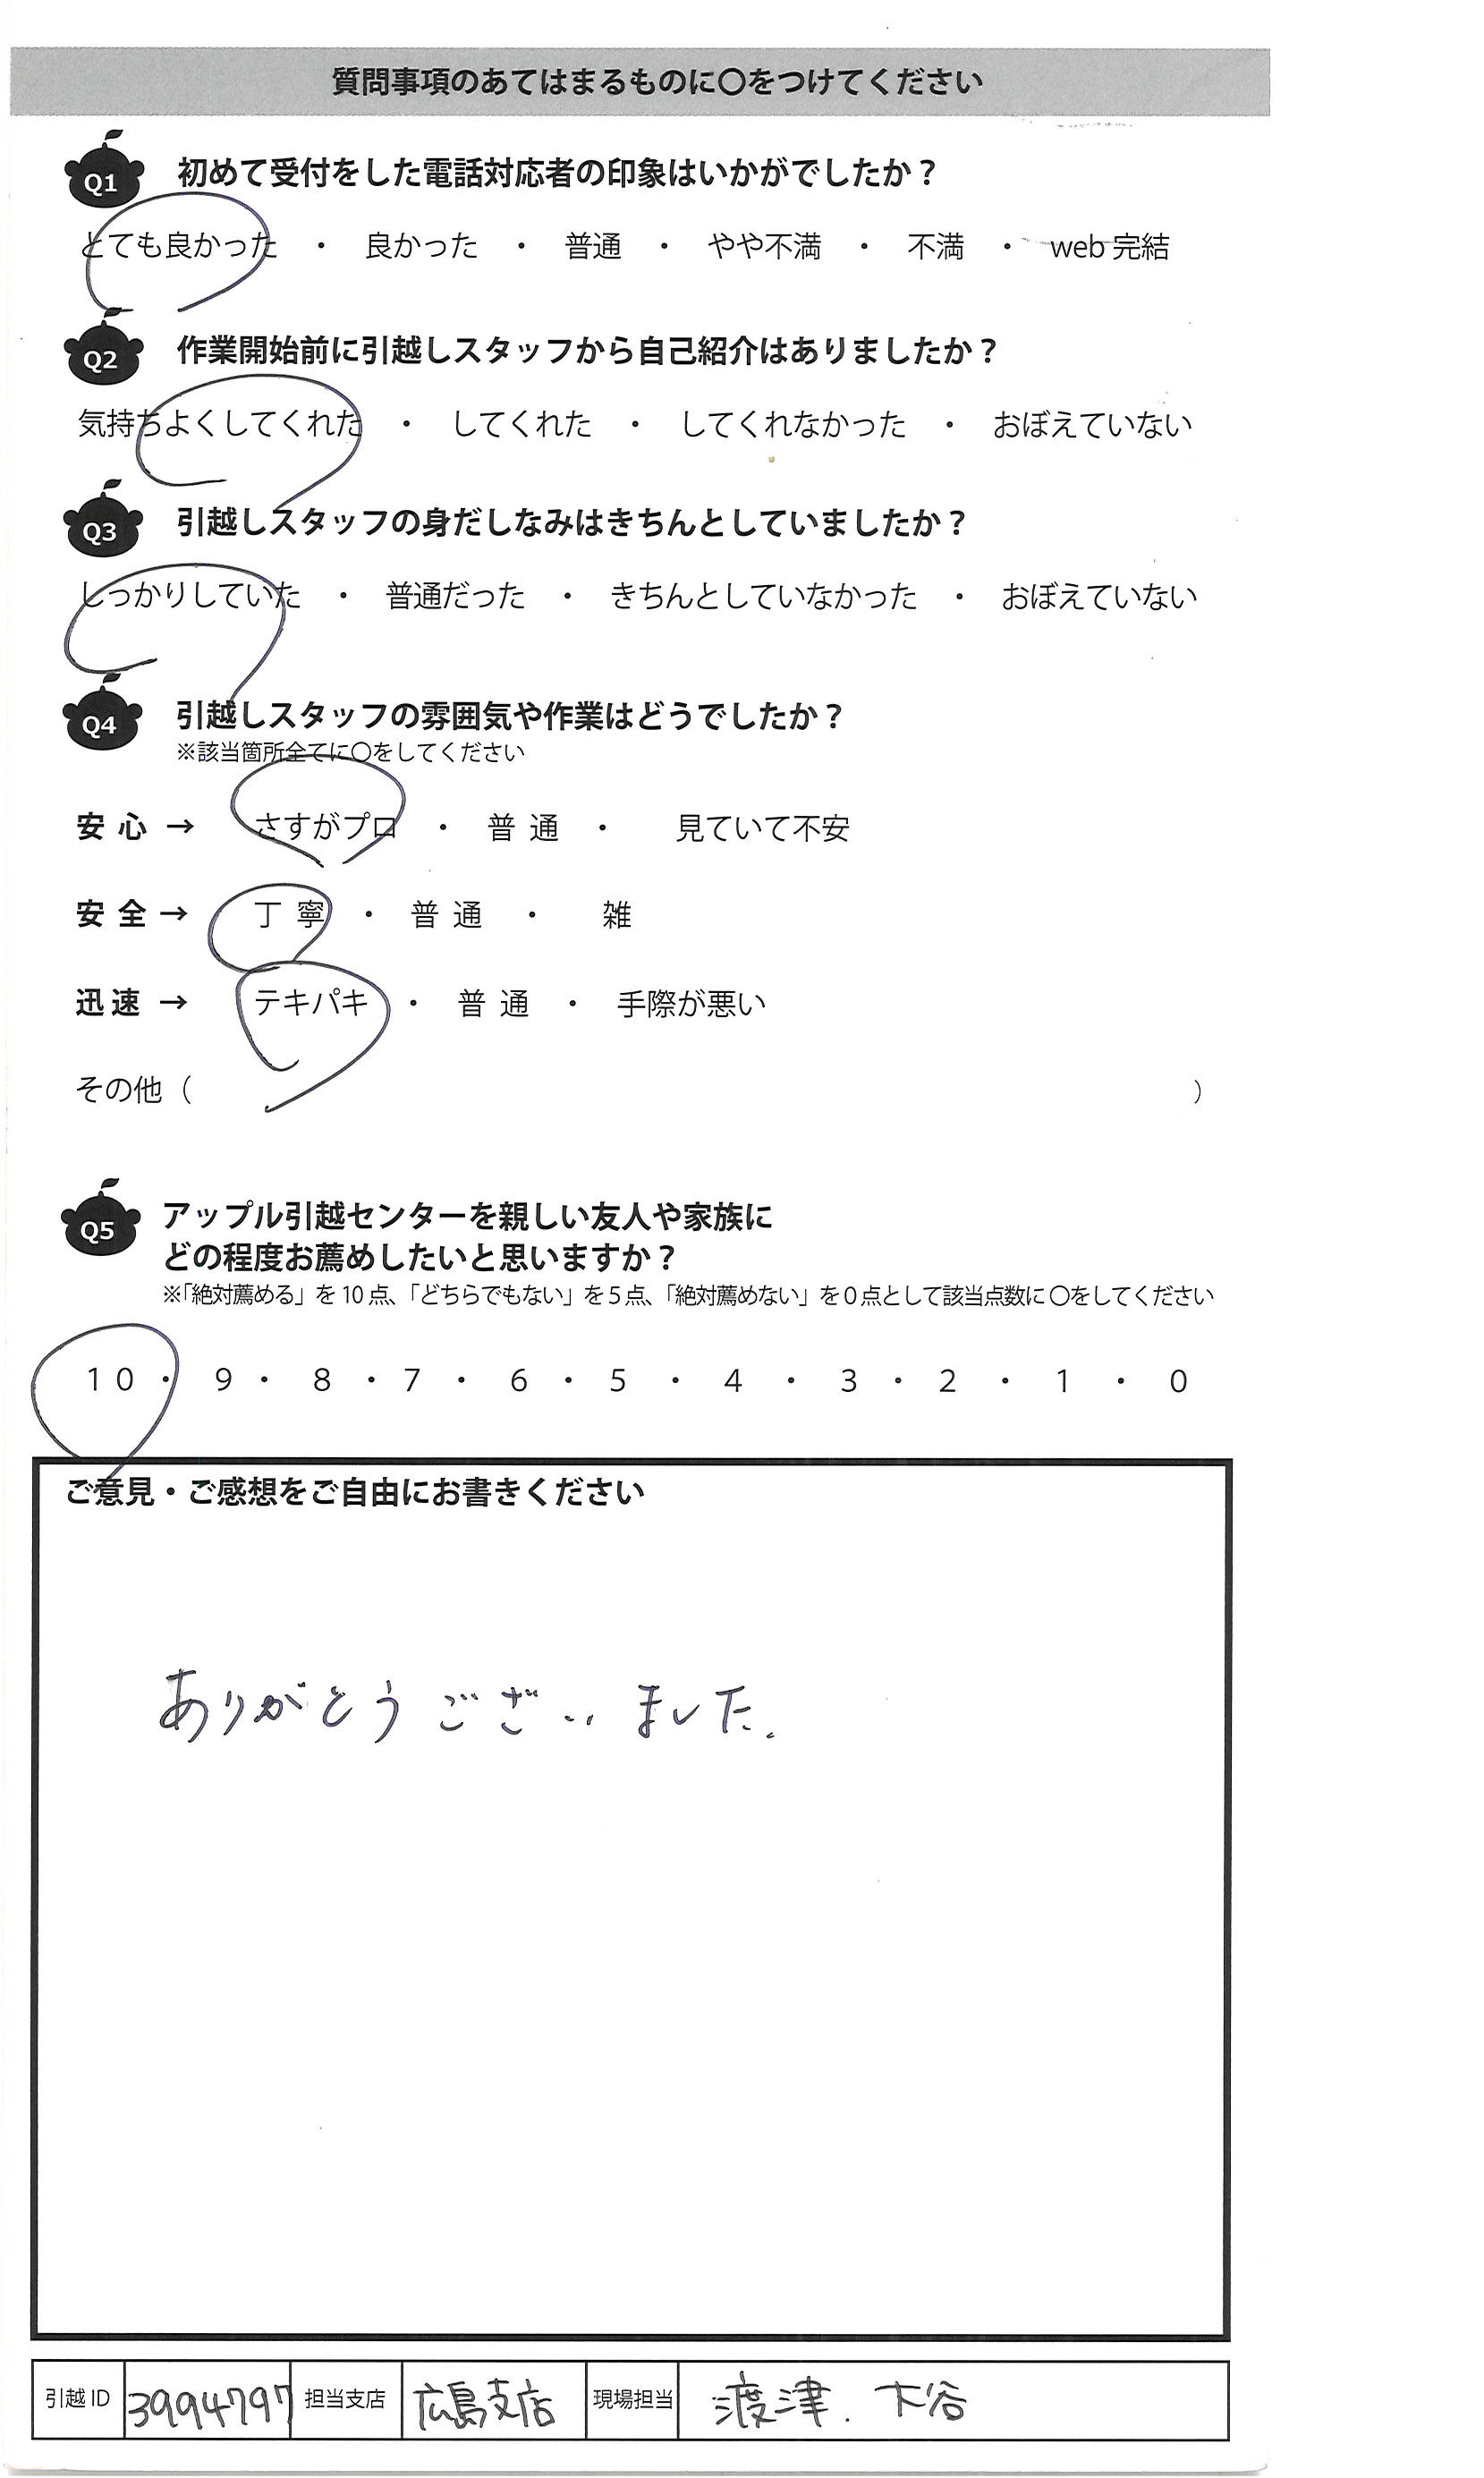 質問事項のあてはまるものに〇をつけてください
Q1 初めて受付をした電話対応者の印象はいかがでしたか？
とても良かった ・ 良かった ・ 普通 ・ やや不満 ・ 不満 ・ web 完結
Q2 作業開始前に引越しスタッフから自己紹介はありましたか？
気持ちよくしてくれた ・ してくれた ・ してくれなかった ・ おぼえていない
Q3 引越しスタッフの身だしなみはきちんとしていましたか？
しっかりしていた ・ 普通だった ・ きちんとしていなかった ・ おぼえていない
Q4 引越しスタッフの雰囲気や作業はどうでしたか？
※該当箇所全てに〇をしてください
安心 → さすがプロ ・ 普通 ・ 見ていて不安
安全 → 丁寧 ・ 普通 ・ 雑
迅速 → テキパキ ・ 普通 ・ 手際が悪い
その他（ ）
Q5 アップル引越センターを親しい友人や家族に
どの程度お薦めしたいと思いますか？
※「絶対薦める」を 10 点、「どちらでもない」を 5 点、「絶対薦めない」を 0 点として該当点数に 〇をしてください
10 ・ 9 ・ 8 ・ 7 ・ 6 ・ 5 ・ 4 ・ 3 ・ 2 ・ 1 ・ 0
ご意見・ご感想をご自由にお書きください
ありがとうございました。
引越 ID 3994797 担当支店 広島支店 現場担当 渡津. 下谷